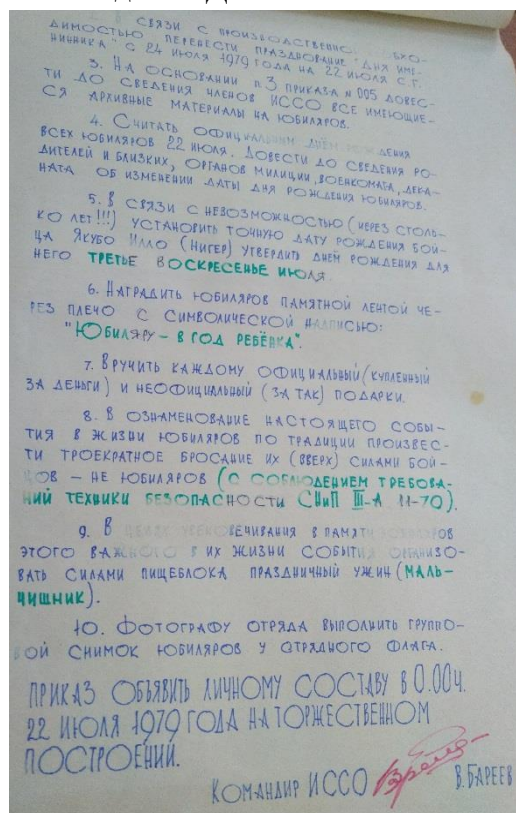 В связи с производственно.
димостью перенести празднование "Дня име-
нинника" с 24 июля 1979 года на 22 июля с.г.
3. На основании п 3 приказа № 005 довес-
ти до сведения членов ИССО все имеющие-
ся архивные материалы на юбиляров.
4. Считать официальным днём рождения
всех юбиляров 22 июля. Довести до сведения ро-
дителей и близких, органов милиции, военкомата, дека-
ната об изменении даты дня рождения юбиляров.
5. В связи с невозможностью (через столь-
ко лет!!!) установить точную дату рождения бой-
ца Якубо Илло (Нигер) утвердить днём рождения для
него третье воскресенье июля.
6. Наградить юбиляров памятной лентой че-
рез плечо с символической надписью:
"Юбиляру – в год ребёнка".
7. Вручить каждому официальный (купленный
за деньги) и неофициальный (за так) подарки.
8. В ознаменование настоящего собы-
тия в жизни юбиляров по традиции произвес-
ти троекратное бросание их (вверх) силами бой-
цов – не юбиляров (с соблюдением требова-
ний техники безопасности СНиП III-А 11-70).
9. В целях увековечивания в памяти юбиляров
этого важного в их жизни события организо-
вать силами пищеблока праздничный ужин (маль-
чишник).
10. Фотографу отряда выполнить группо-
вой снимок юбиляров у отрядного флага.
Приказ объявить личному составу в 0.00ч.
22 июля 1979 года на торжественном
построении.
Командир ИССО В. Бареев